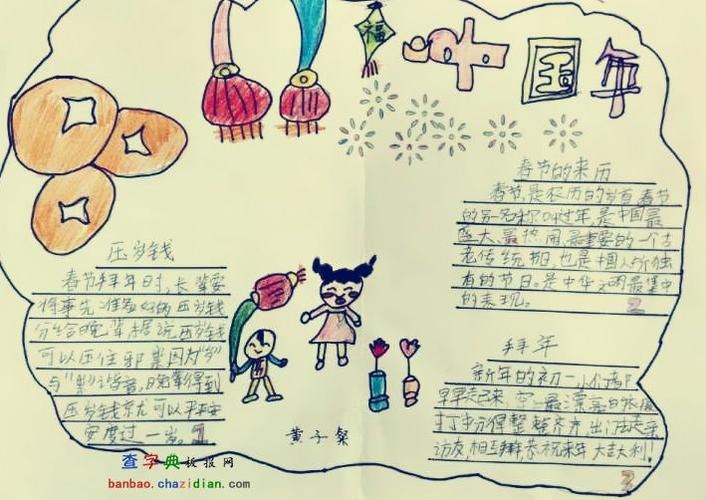 福
中国年
春节的来历
春节,是农历的岁首,春节
的另一名称叫过年,是中国最
盛大、最热闹、最重要的一个古
老传统节日,也是中国人所独
有的节日。是中华文明最集中
的表现。
2
压岁钱
春节拜年时,长辈要
将事先准备好的压岁钱
分给晚辈,据说压岁钱
可以压住邪祟,因为“岁”
与“祟”谐音,晚辈得到
压岁钱就可以平平安
安度过一岁。1
拜年
新年的初一,人们都
早早起来,穿最漂亮的衣服
打扮得整整齐齐,出门去走亲
访友,相互拜年,恭祝来年大吉大利!
3
黄子粲
查字典板报网
banbao.chazidian.com